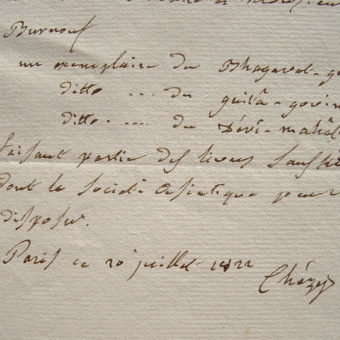 Burnouf
un exemplaire du Bhagavat-go
ditto ... du guitâ-govin
ditto ... du Dévi-mahat
faisant partie des livres Sanskri
dont la société asiatique peut
disposer.
Paris ce 20 juillet 1822
Chézy